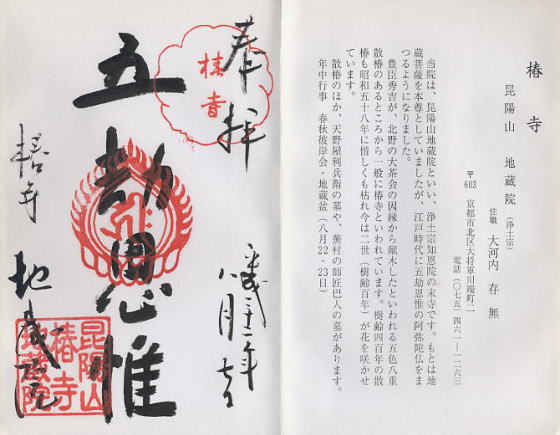 椿寺
昆陽山 地蔵院（浄土宗）
住職 大河内 存無
〒603 京都市北区大将軍川端町二
電話（〇七五）四六一-一二六三
当院は、昆陽山地蔵院といい、浄土宗知恩院の末寺です。もとは地
蔵菩薩を本尊としていましたが、江戸時代に五劫思惟の阿弥陀仏をま
つるようになりました。
豊臣秀吉が、北野の大茶会の因縁から献木したといわれる五色八重
散椿のあるところから一般に椿寺といわれています。樹齢四百年の散
椿も昭和五十八年に惜しくも枯れ今は二世（樹齢百年）が花を咲かせ
ています。
散椿のほか、天野屋利兵衛の墓や、蕪村の師匠巴人の墓があります。
年中行事 春秋彼岸会・地蔵盆（八月22・23日）
奉拝
椿寺
五劫思惟
椿寺
地蔵院
昆陽山
椿寺
地蔵院